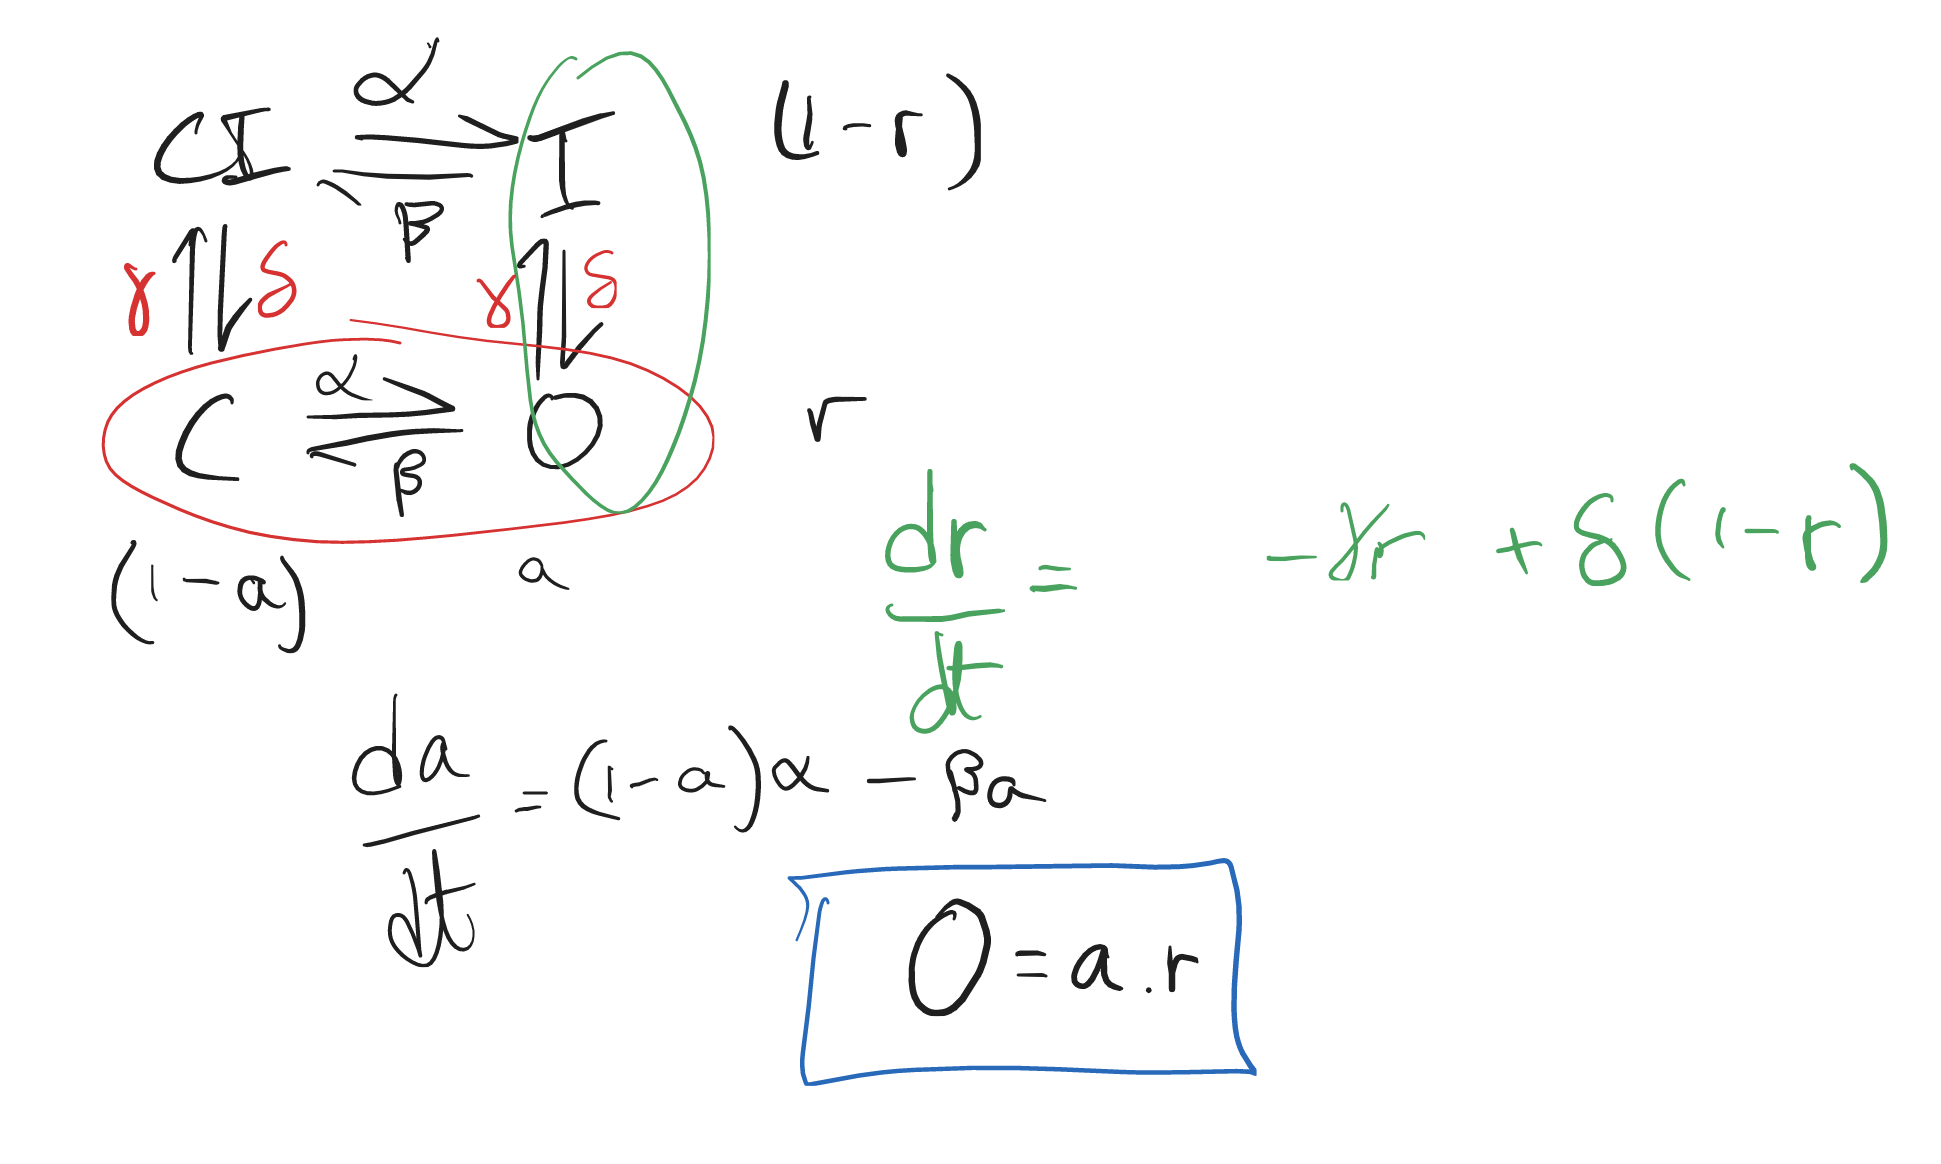 α
CI I (1-r)
β
γ δ γ δ
α
C O r
β
(1-a) a
dr/dt = -γr + δ(1-r)
da/dt = (1-a)α - βa
O = a.r